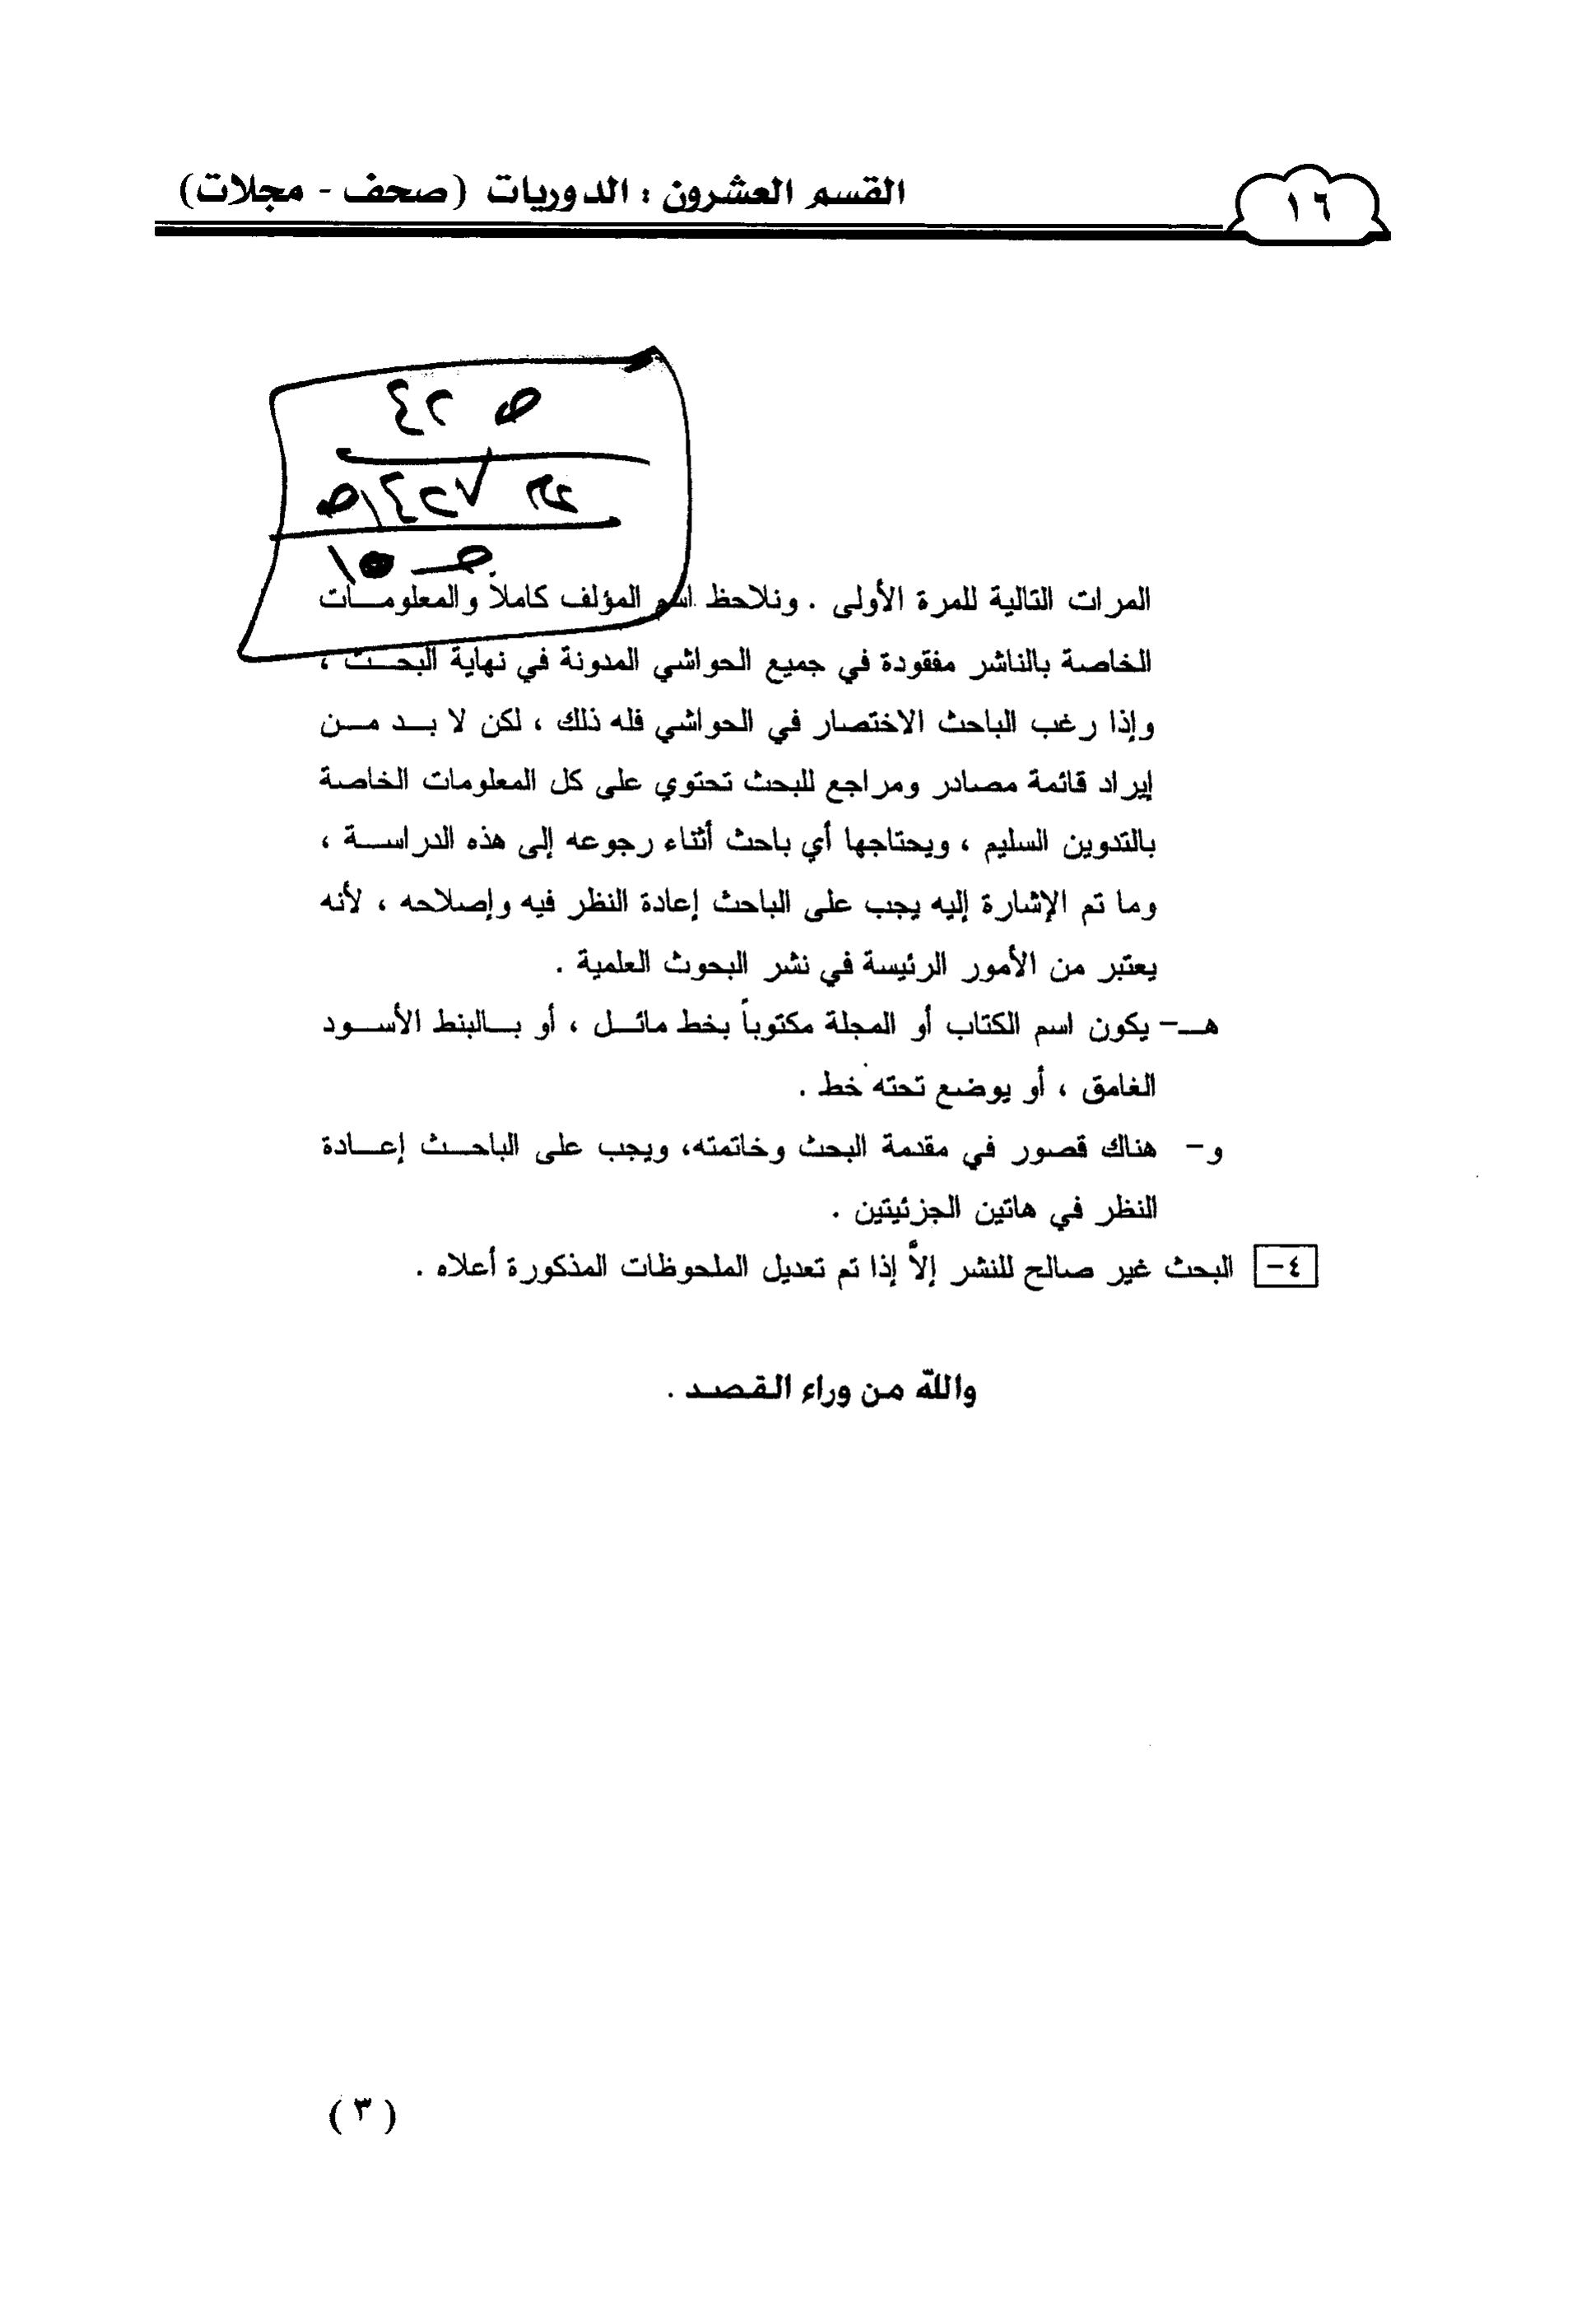 ١٦
القسم العشرون : الدوريات (صحف - مجلات)
ص ٢٤
ص ١٥
المرات التالية للمرة الأولى . ونلاحظ اسم المؤلف كاملاً والمعلومـــات
الخاصة بالناشر مفقودة في جميع الحواشي المدونة في نهاية البحـــث ،
وإذا رغب الباحث الاختصار في الحواشي فله ذلك ، لكن لا بـــد مـــن
إيراد قائمة مصادر ومراجع للبحث تحتوي على كل المعلومات الخاصة
بالتدوين السليم ، ويحتاجها أي باحث أثناء رجوعه إلى هذه الدراســـة ،
وما تم الإشارة إليه يجب على الباحث إعادة النظر فيه وإصلاحه ، لأنه
يعتبر من الأمور الرئيسة في نشر البحوث العلمية .
هـــ- يكون اسم الكتاب أو المجلة مكتوباً بخط مائـــل ، أو بـــالبنط الأســـود
الغامق ، أو يوضع تحته خط .
و- هناك قصور في مقدمة البحث وخاتمته، ويجب على الباحـــث إعـــادة
النظر في هاتين الجزئيتين .
٤- البحث غير صالح للنشر إلاَّ إذا تم تعديل الملحوظات المذكورة أعلاه .
والله من وراء القصد .
( ٣ )